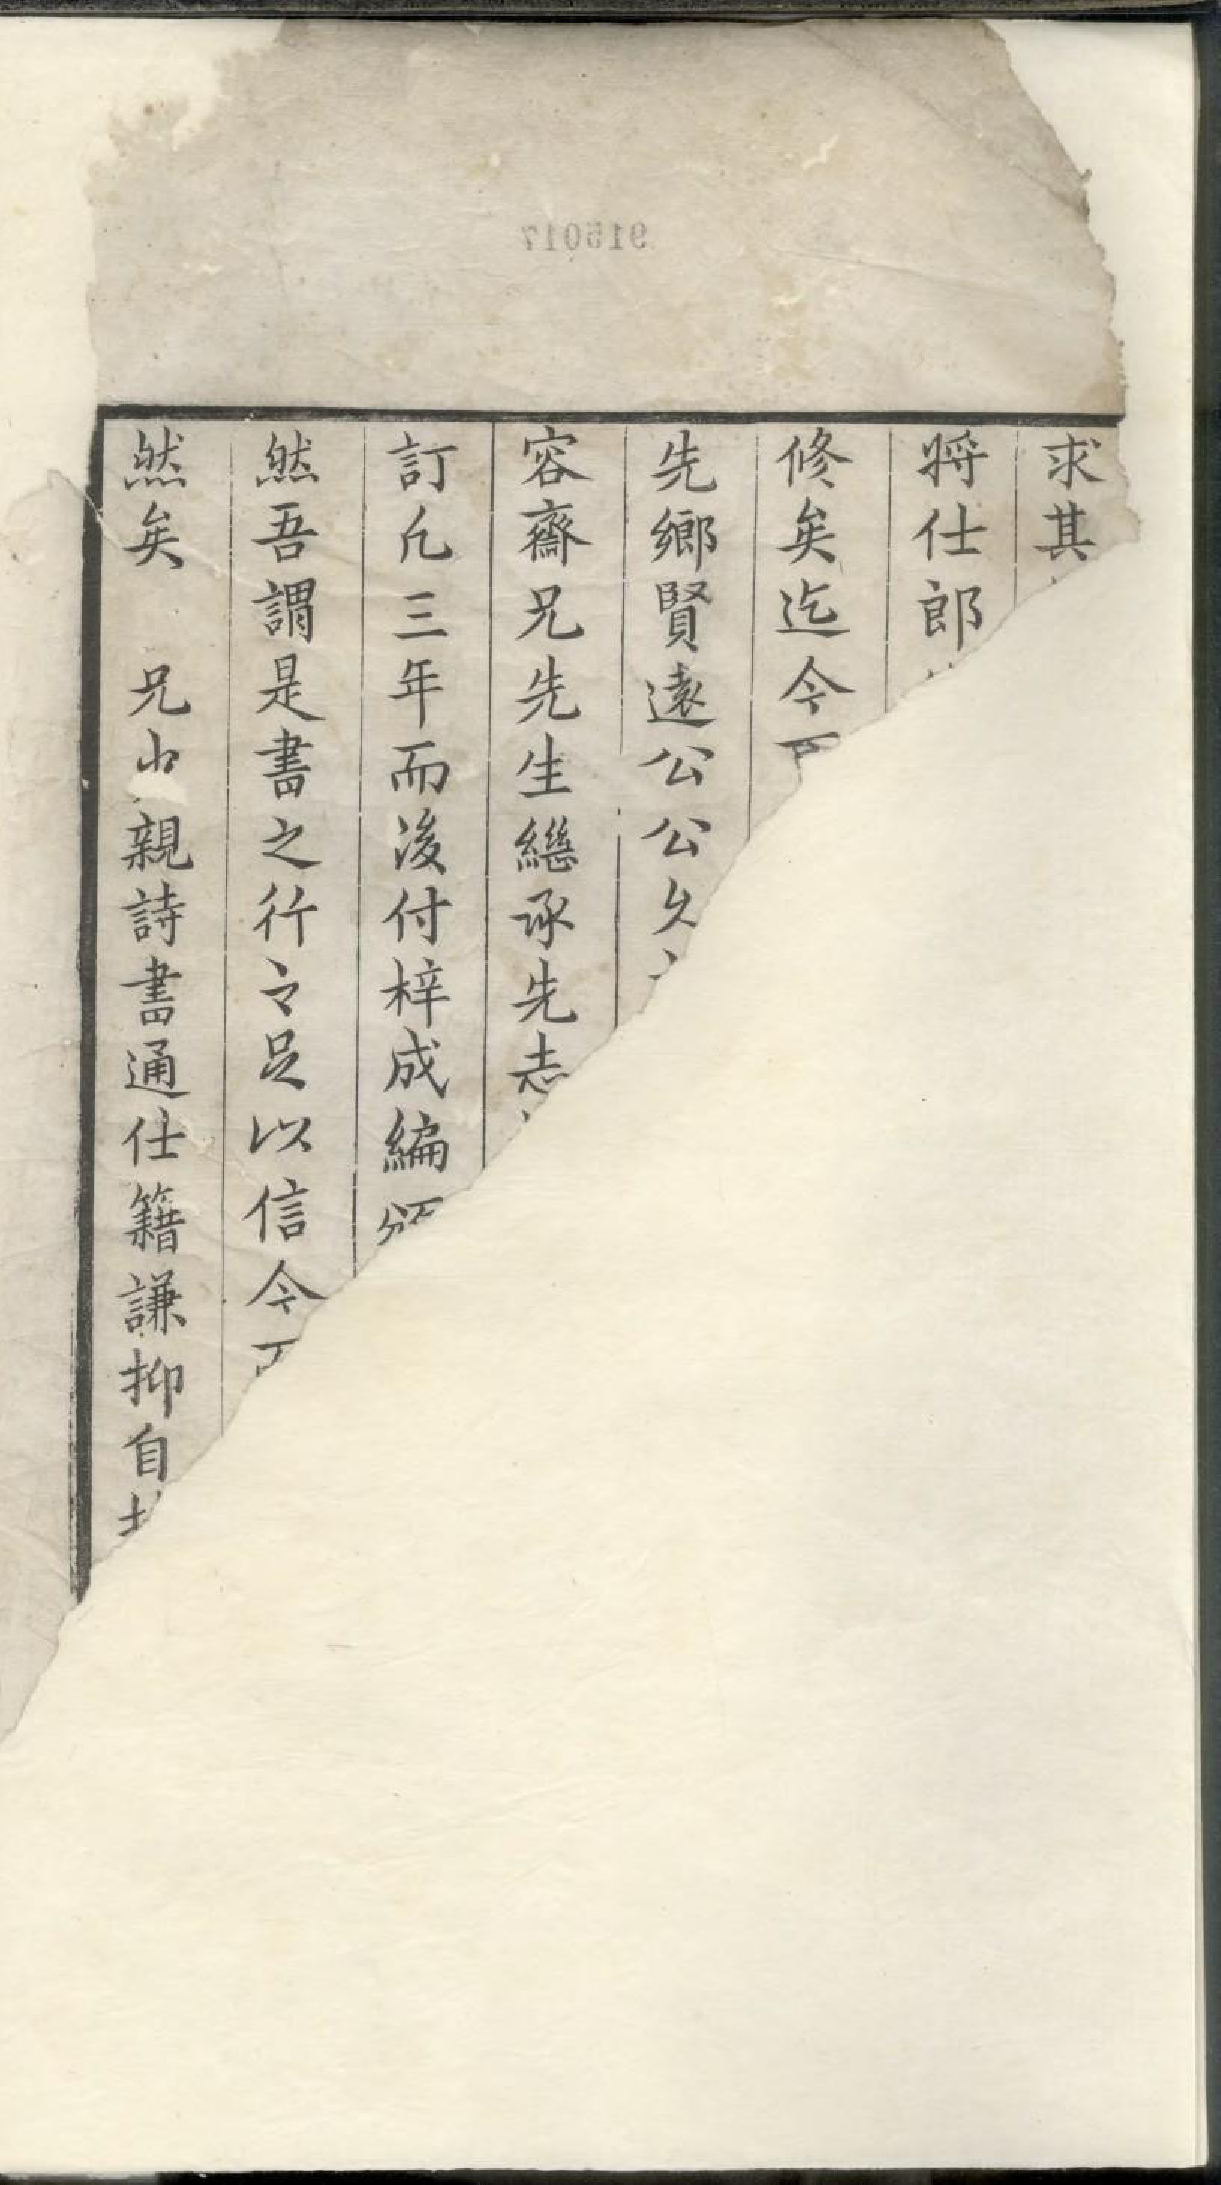 915017
求其
將仕郎
修矣迄今
先鄉賢遠公公久
容齋兄先生繼承先志
訂凡三年而後付梓成編頒
然吾謂是書之行之足以信今
然矣 兄少親詩書通仕籍謙抑自